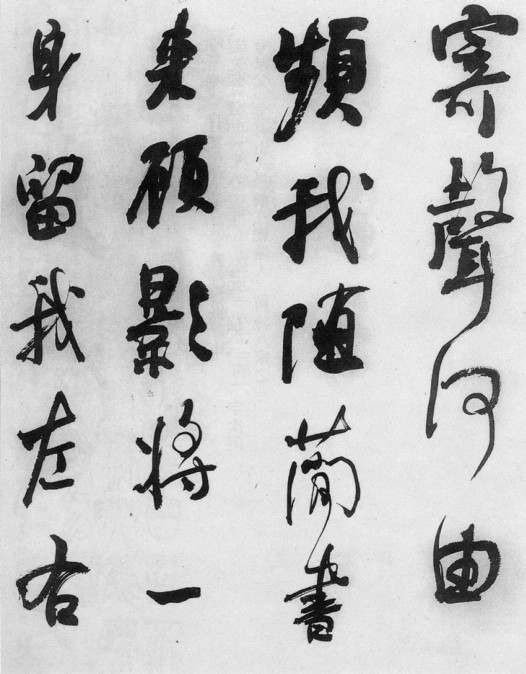 寄聲何由
頻我隨簡書
來顧影將一
身留我左右